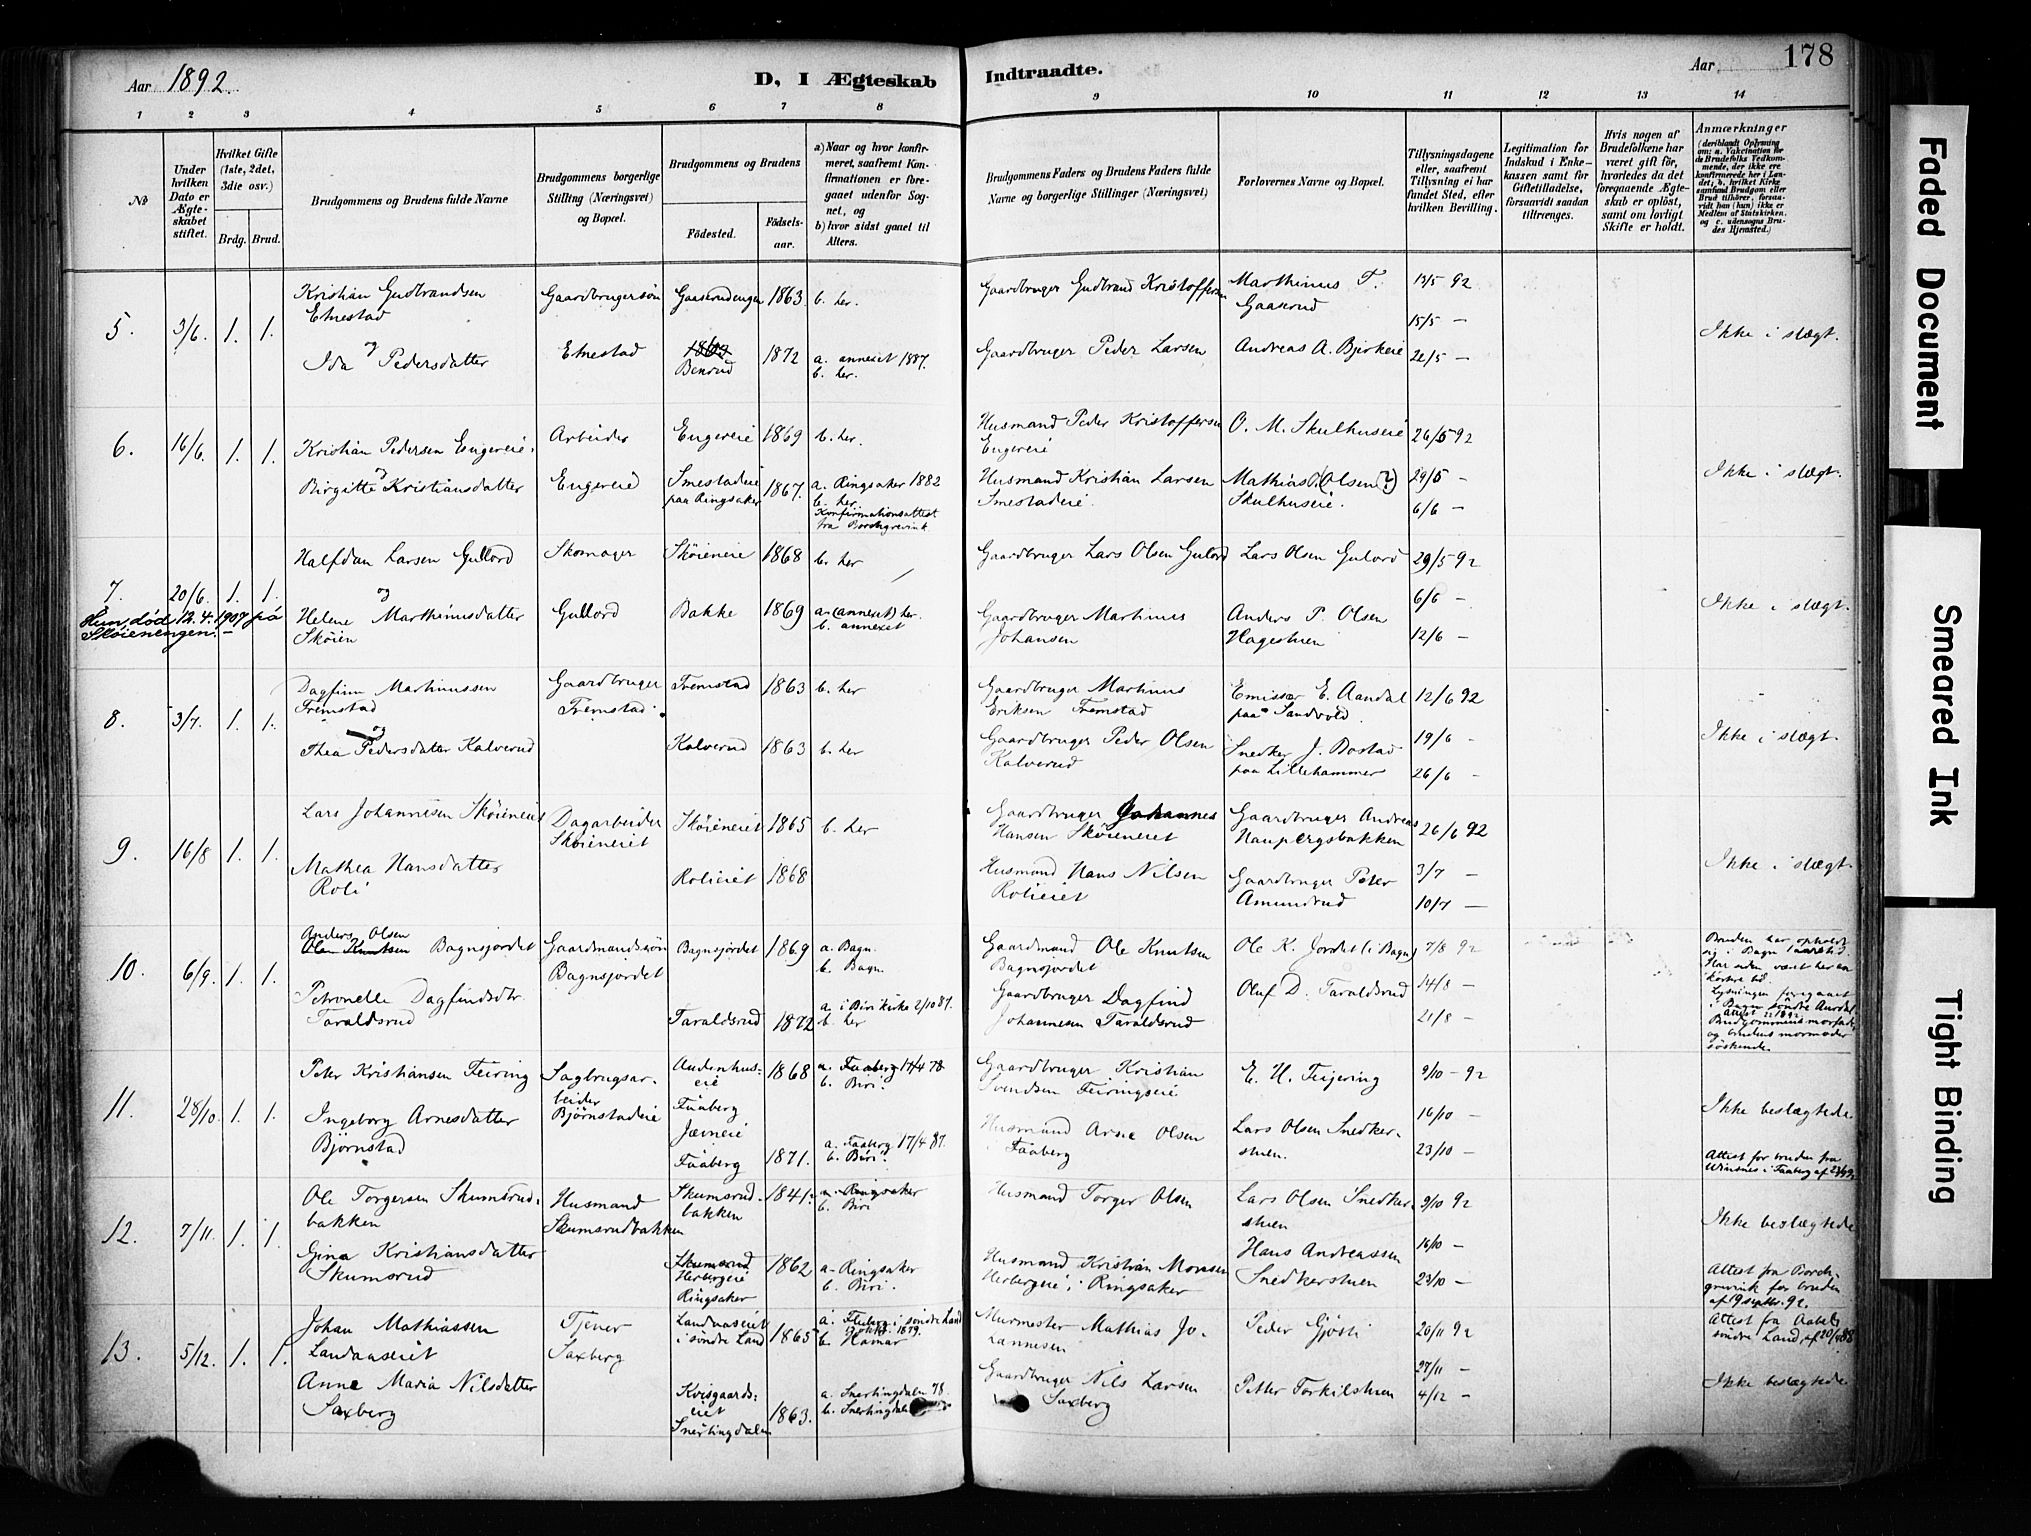 Aar 1892.
D, I Ægteskab Indtraadte.
Aar 178
1 2 3 4 5 6 7 8 9 10 11 12 13 14
No
Under hvilken Dato er Ægteskabet stiftet.
Hvilket Gifte (1ste, 2det, 3die osv.)
Brdg. Brud.
Brudgommens og Brudens fulde Navne
Brudgommens borgerlige Stilling (Næringsvei) og Bopæl.
Brudgommens og Brudens
Fødested. Fødselsaar.
a) Naar og hvor konfirmeret, saafremt Konfirmationen er foregaaet udenfor Sognet, og
b) hvor sidst gaaet til Alters.
Brudgommens Faders og Brudens Faders fulde Navne og borgerlige Stillinger (Næringsvei)
Forlovernes Navne og Bopæl.
Tillysningsdagene eller, saafremt Tillysning ei har fundet Sted, efter hvilken Bevilling.
Legitimation for Indskud i Enkekassen samt for Giftetilladelse, forsaavidt saadan tiltrænges.
Hvis nogen af Brudefolkene har været gift før, hvorledes da det foregaaende Ægteskab er opløst, samt om lovligt Skifte er holdt.
Anmærkninger (deriblandt Oplysning om: a. Vakcination for de Brudefolks Vedkommende, der ikke ere konfirmerede her i Landet, b. hvilket Kirkesamfund Brudgom eller Brud tilhører, forsaavidt han (hun) ikke er Medlem af Statskirken, og c. udensogns Brudes Hjemsted.)
5. 3/6. 1. 1.
Kristian Gudbrandsen Elnestad
Gaardbrugersøn Gaaserudenger 1863 b. her.
Gaardbruger Gudbrand Kristoffersen
Marthinus T. Gaaserud
13/5 92
15/5 —
22/5 —
og
Ida Pedersdatter
Elnestad Benrud 1872 a. annexet 1887. b. her.
Gaardbruger Peder Larsen
Andreas A. Bjerkeie
Ikke i slægt.
6. 16/6. 1. 1.
Kristian Pedersen Engereie.
Arbeider Engereie 1869 b. her.
Husmand Peder Kristoffersen Engereie
O. M. Skulhuseie
26/5 92
29/5 —
6/6 —
og
Birgitte Kristiansdatter
Engereie Smestadeie paa Ringsaker 1867. a. Ringsaker 1882 b. her Konfirmationsattest fra Borchgrevink
Husmand Kristian Larsen Smestadeie.
Mathias O. (Olsen?) Skulhuseie.
Ikke i slægt.
7. 20/6. 1. 1.
Halfdan Larsen Gullord
Skomager Skøieneie 1868 b. her
Gaardbruger Lars Olsen Gulord
Lars Olsen Gulord
29/5 92
6/6 —
12/6 —
og
Helene Marthinusdatter Skøien
Gullord Bakke 1869 a. (annexet) her. b. annexet
Gaardbruger Martinus Johansen
Anders P. Olsen Hagestuen
Ikke i slægt.
Hun død 12.4.1907 på Skøienengen.
8. 3/7. 1. 1.
Dagfinn Martinussen Fremstad
Gaardbruger Fremstad. Fremstad 1863 b. her
Gaardbruger Martinus Eriksen Fremstad
Emissær E. Aandal paa Sandvold.
12/6 92
19/6 -
26/6 -
og
Thea Pedersdatter Kalverud
Kalverud 1863 b. her
Gaardbruger Peder Olsen Kalverud
Snedker J. Bostad paa Lillehammer
Ikke i slægt.
9. 16/8 1. 1.
Lars Johannesen Skøieneiet
Dagarbeider Skøieneiet Skøieneiet 1865 b. her
Gaardbruger Johannes Hansen Skøieneiet
Gaardbruger Andreas Haugbergsbakken
26/6 92
3/7 —
10/7 —
Mathea Hansdatter Roli
Rolieiet 1868
Husmand Hans Nilsen Rolieiet
Gaardbruger Peter Amundrud
Ikke i slægt.
10. 6/9. 1. 1.
Anders Olsen
Ole Knutsen Bagnsjordet
Gaardmandssøn Bagnsjordet Bagnsjordet 1869 a. Bagn. b. Bagn.
Gaardmand Ole Knutsen Bagnsjordet
Ole K. Jordet (i Bagn)
7/8 92
14/8 —
21/8 —
Petronelle Dagfindsdtr. Taraldsrud
Taraldsrud 1872 a. i Biri kirke 2/10 87. b. her
Gaardbruger Dagfind Johannesen Taraldsrud
Oluf D. Taraldsrud
Bruden har opholdt sig i Bagn 1 aarstid. Har siden været her en kortere tid. Lysningen foregaaet i Bagn søndre Aurdal
Brudgommens morfader og brudens mormoder søskende.
11. 28/10. 1. 1.
Peter Kristiansen Feiring
Sagbrugsarbeider Bjørnstadeie
Audenhuseie Faaberg 1868 a. Faaberg 17/4 78 b. Biri.
Gaardbruger Kristian Svendsen Feiringseie
E. H. Feijering
9/10 - 92
16/10 —
23/10 —
Ingeborg Arnesdatter Bjørnstad
Jævneie Faaberg 1871. a. Faaberg 17/4 87. b. Biri.
Husmand Arne Olsen Faaberg
Lars Olsen Snedkerstuen.
Ikke beslægtede
Attest for bruden fra Winsnes i Faaberg af
12. 7/11. 1. 1.
Ole Torgersen Skumsrudbakken
Husmand Skumsrudbakken Skumsrudbakken 1841. a. Ringsaker b. Biri
Husmand Torger Olsen
Lars Olsen Snedkerstuen
9/10 92
16/10 —
23/10 —
Gina Kristiansdatter Skumsrud
Skumsrud Herbergeie Ringsaker 1862 a. Ringsaker b. Biri.
Husmand Kristian Monsen Herbergeie i Ringsaker
Hans Andreassen Snedkerstuen
Ikke beslægtede
Attest fra Borchgrevink for bruden af 19 septbr. 92.
13. 5/12. 1. 1.
Johan Mathiassen Landaaseiet
Tjener Saxberg Landaaseiet i søndre Land 1865 a. Fluberg i søndre Land 1879. b. Hamar
Murmester Mathias Johannesen
Peder Gjøsti
20/11 92
27/11 —
4/12 —
Anne Maria Nilsdatter Saxberg
Kvisgaardseiet Snertingdalen 1863. a. Snertingdalen 78. b. Snertingdalen
Gaardbruger Nils Larsen Saxberg
Petter Torkilstuen
Attest fra Aabel søndre Land af 20/4 88
Ikke beslægtede
Faded Document
Smeared Ink
Tight Binding